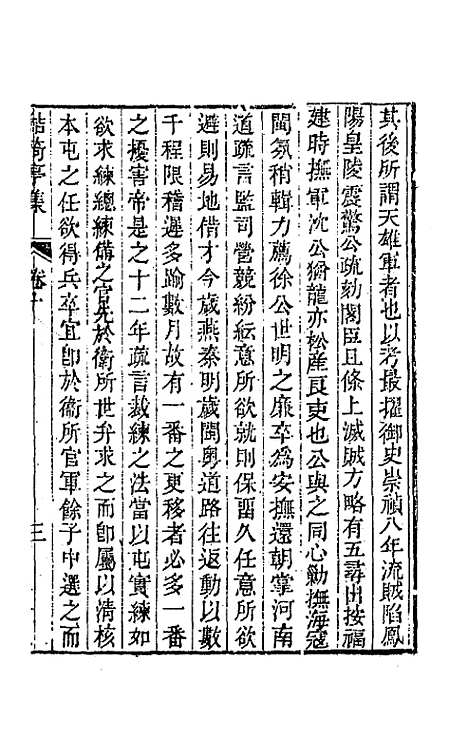 其後所謂天雄軍者也以考最擢御史崇禎八年流賊陷鳳
陽皇陵震驚公疏劾閣臣且條上滅賊方略有五尋出按福
建時撫軍沈公猶龍亦松産良吏也公與之同心勦撫海寇
閩氛稍輯力薦徐公世明之廉卒為安撫還朝掌河南
道疏言監司營競紛紜意所欲就則保留久任意所欲
避則易地借才今歲燕秦明歲閩粵道路往返動以數
千程限稽遲多踰數月故有一番之更移者必多一番
之擾害帝是之十二年疏言裁練之法當以屯實練如
欲求練總練備之官先於衛所世弁求之而卽屬以清核
本屯之任欲得兵卒宜卽於衞所官軍餘子中選之而
鮚埼亭集
卷十
三